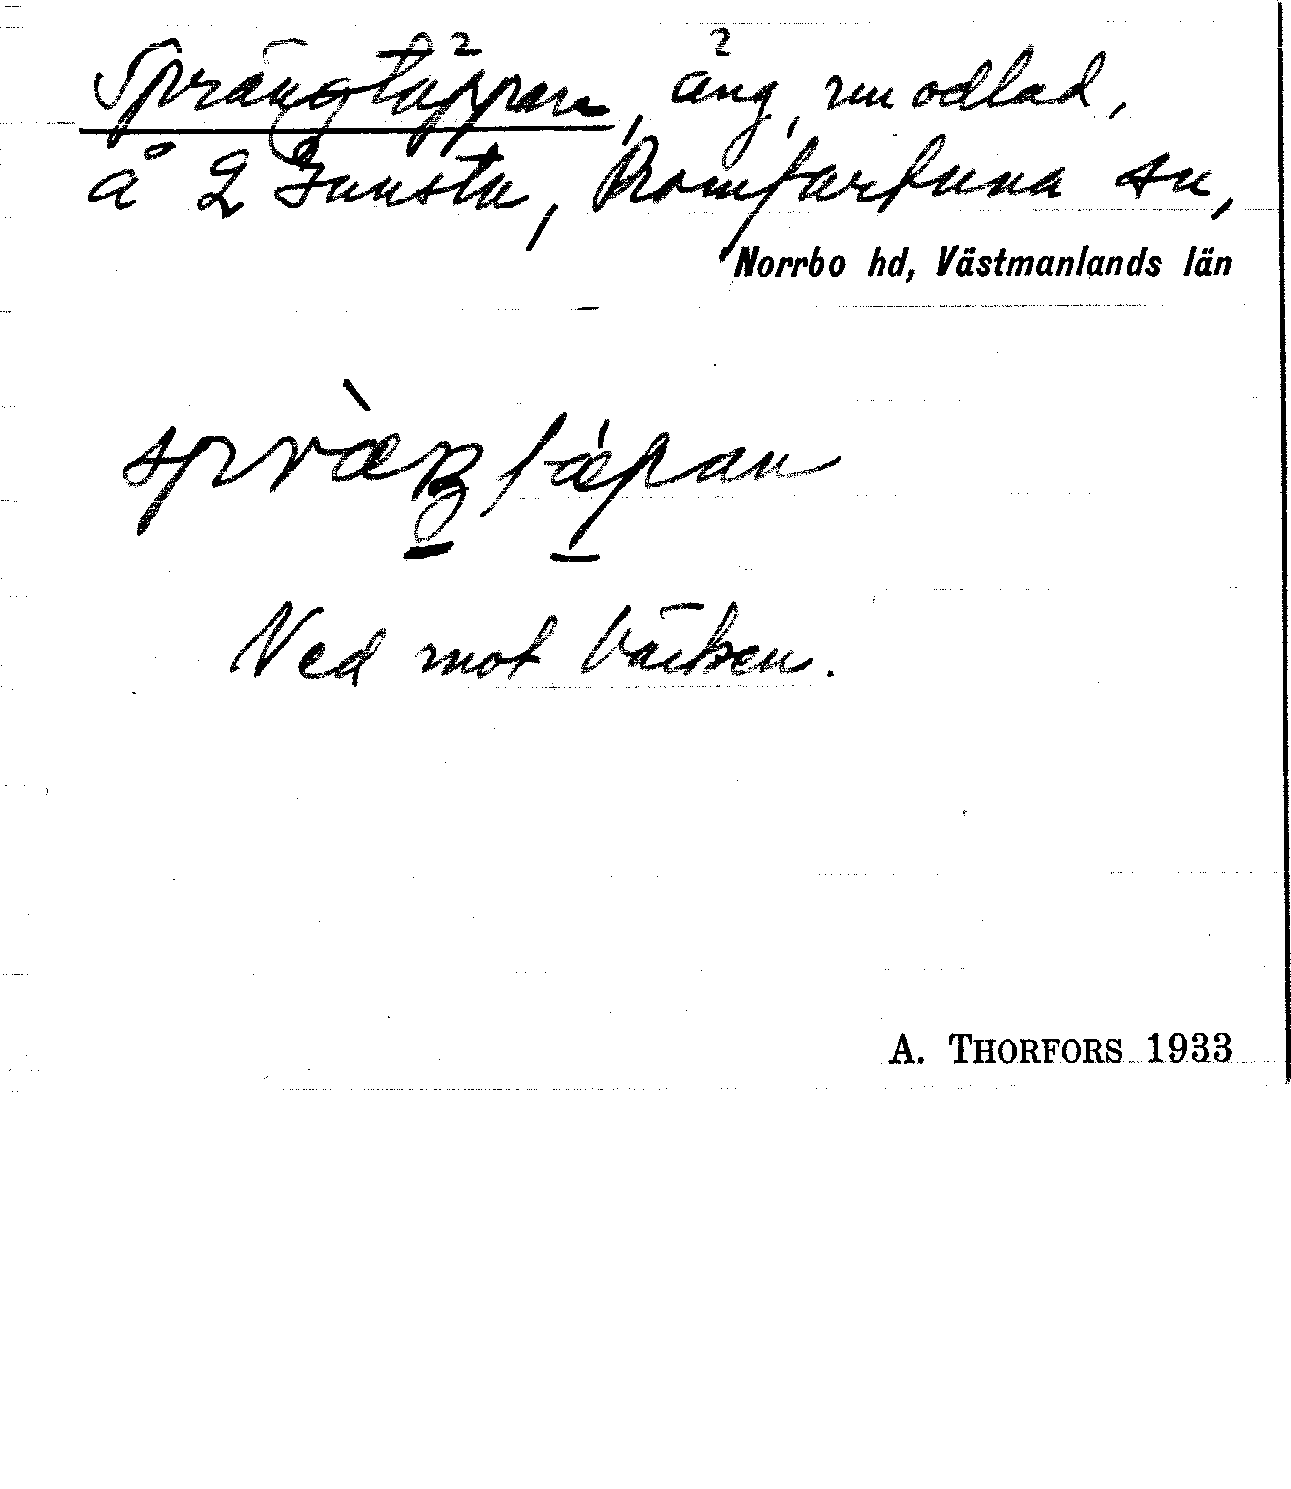 Sprängtäppan, äng, nu odlad,
å 2 Junsta, Romfartuna sn,
Norrbo hd, Västmanlands län
Ned mot bäcken.
A. THORFORS 1933